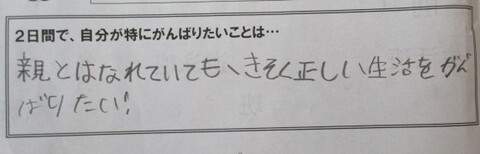 2日間で、自分が特にがんばりたいことは…
親とはなれていても、きそく正しい生活をがん
ばりたい!